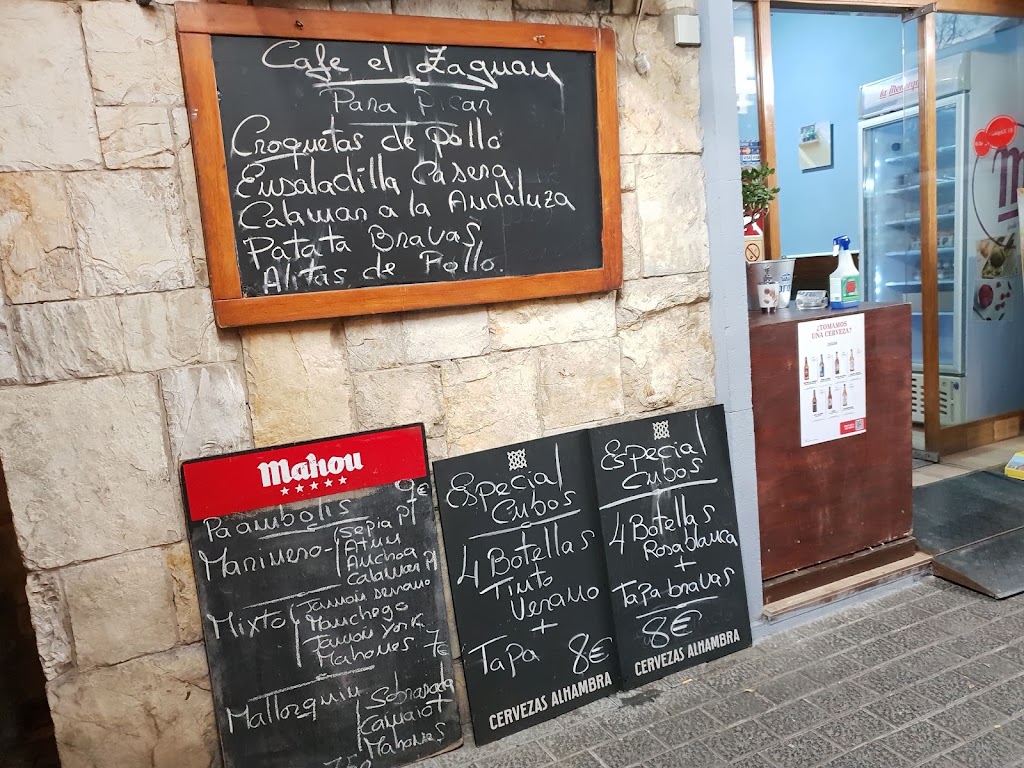 Cafe el Zaguan
Para Picar
Croquetas de Pollo
Ensaladilla Casera
Calamar a la Andaluza
Patata Bravas
Alitas de Pollo.
Mahou
Pa ambolis
Marinero
Sepia Pl
Atun
Anchoa
Calamar Pl
9€
Mixto
Jamon Serrano
Manchego
Jamon York
Mahones 7€
Mallorquin
Sobrasada
Camaiot
Mahones
750
Especial
Cubos
4 Botellas
Tinto
Verano
+
Tapa 8€
CERVEZAS ALHAMBRA
Especial
Cubos
4 Botellas
Rosa blanca
+
Tapa bravas
8€
CERVEZAS ALHAMBRA
¿TOMAMOS
UNA CERVEZA?